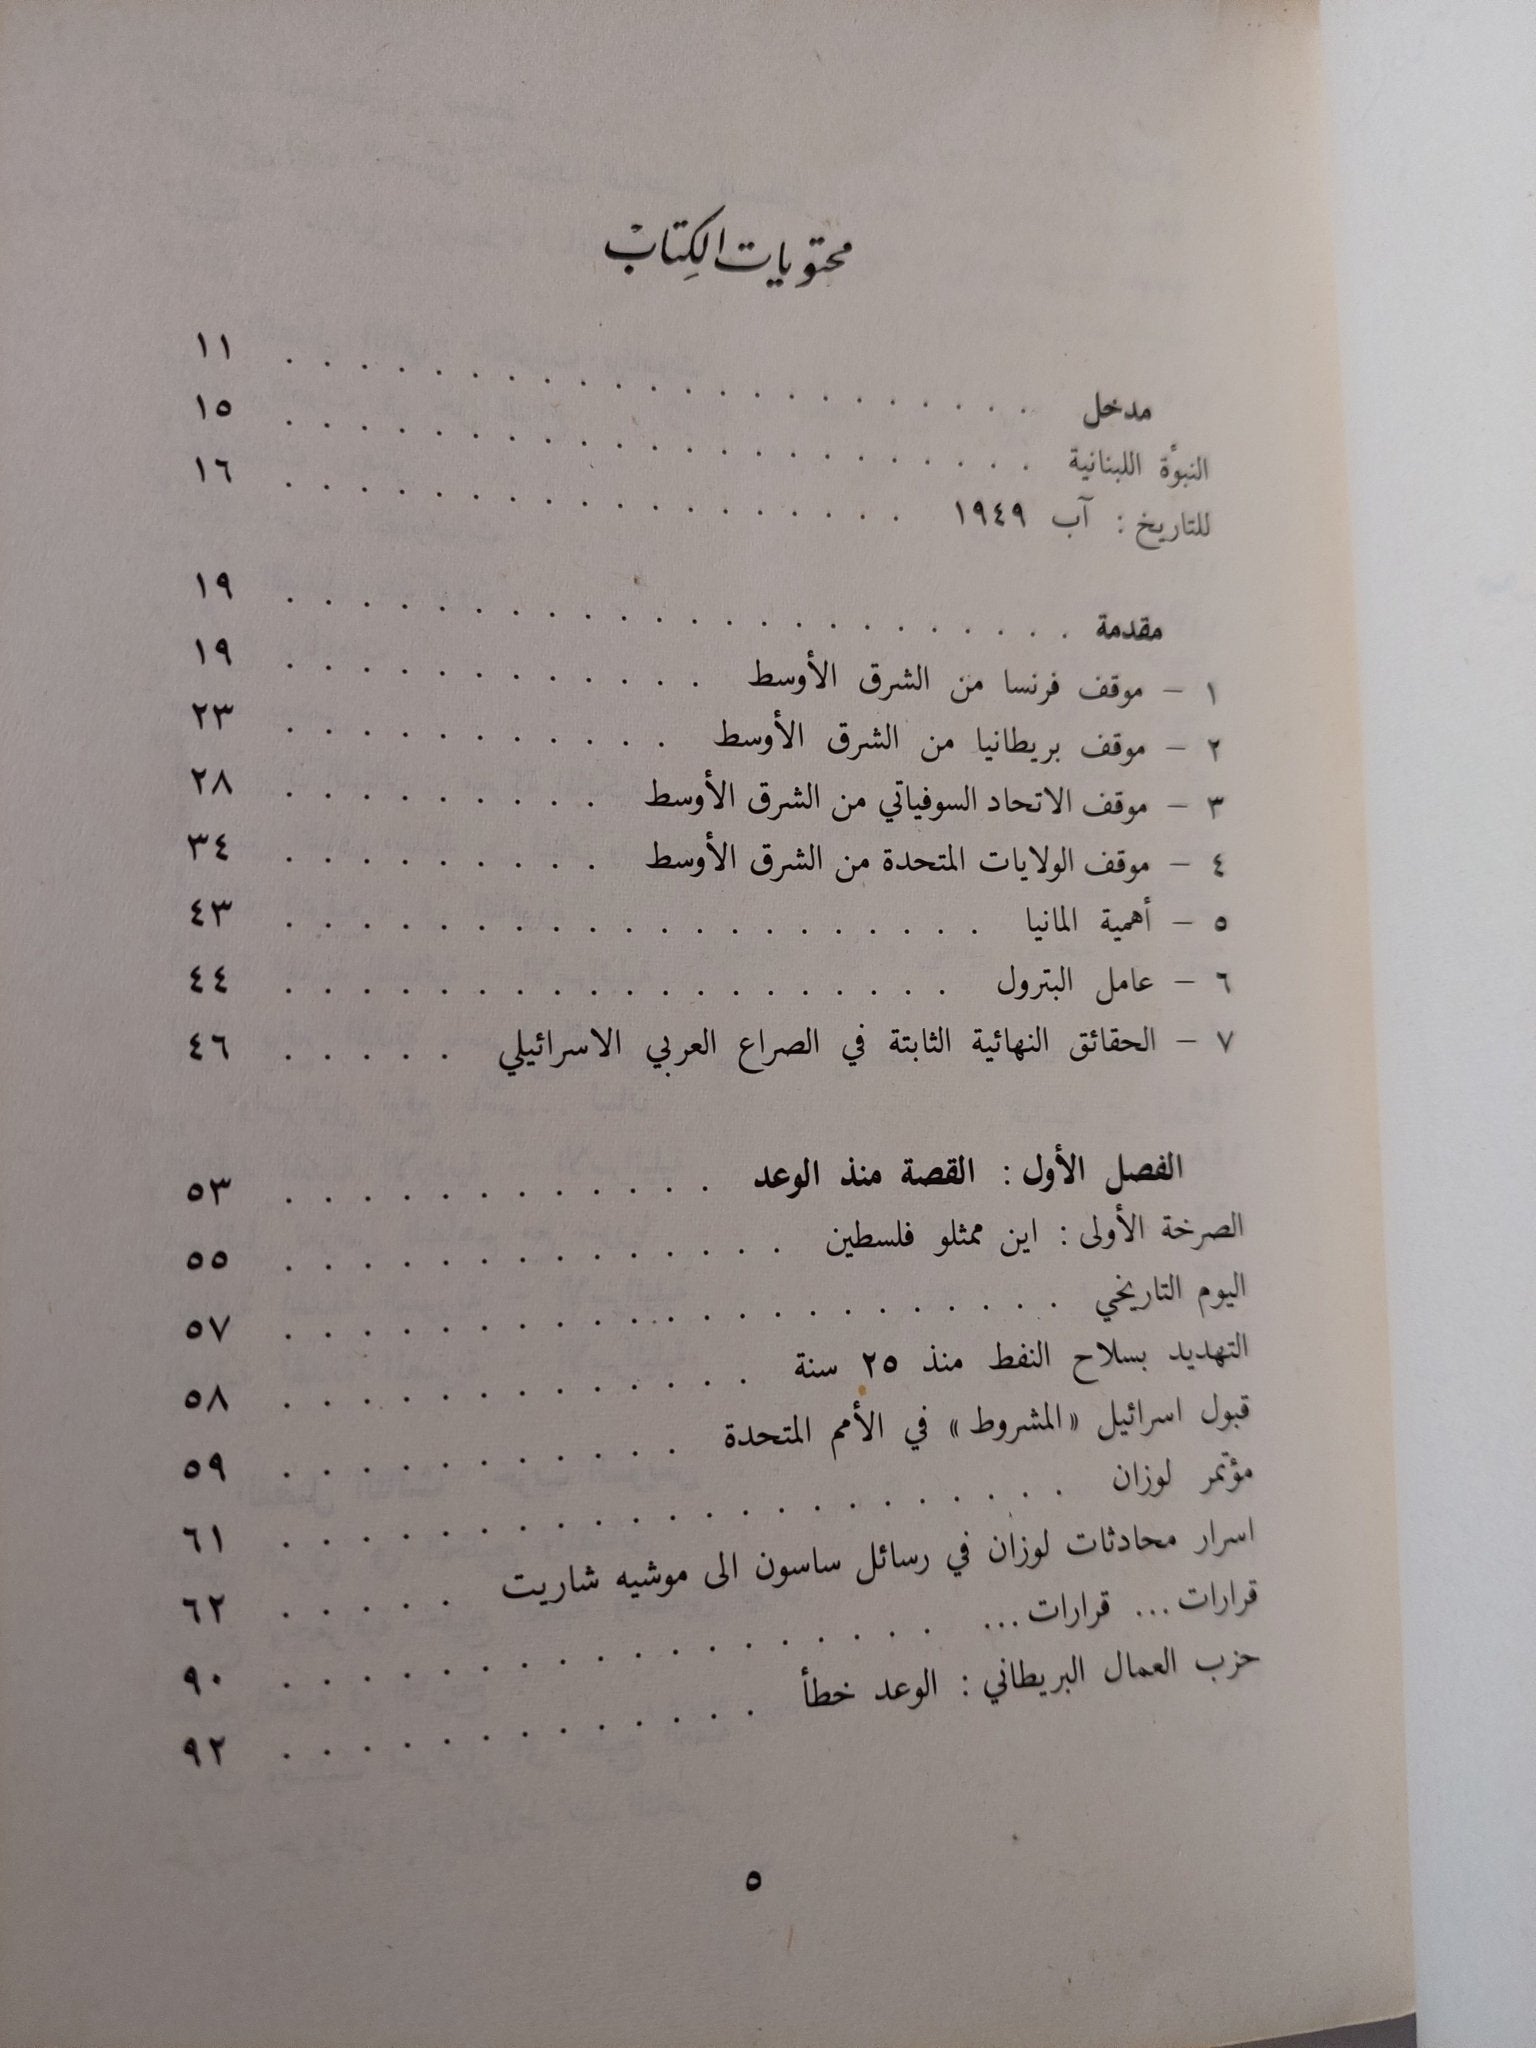 محتويات الكتاب
مدخل . . . . . . . . . . . . . . . . . . . . . ١١
النبوّة اللبنانية . . . . . . . . . . . . . . . . . . . . . ١٥
للتاريخ : آب ١٩٤٩ . . . . . . . . . . . . . . . . . ١٦
مقدمة . . . . . . . . . . . . . . . . . . . . . . ١٩
١ – موقف فرنسا من الشرق الأوسط . . . . . . . . . . . . ١٩
٢ – موقف بريطانيا من الشرق الأوسط . . . . . . . . . . . ٢٣
٣ – موقف الاتحاد السوفياتي من الشرق الأوسط . . . . . . . . . ٢٨
٤ – موقف الولايات المتحدة من الشرق الأوسط . . . . . . . . . ٣٤
٥ – أهمية المانيا . . . . . . . . . . . . . . . . . . . ٤٣
٦ – عامل البترول . . . . . . . . . . . . . . . . . . ٤٤
٧ – الحقائق النهائية الثابتة في الصراع العربي الاسرائيلي . . . . . ٤٦
الفصل الأول : القصة منذ الوعد . . . . . . . . . . . . ٥٣
الصرخة الأولى : اين ممثلو فلسطين . . . . . . . . . . . . . . ٥٥
اليوم التاريخي . . . . . . . . . . . . . . . . . . . . . ٥٧
التهديد بسلاح النفط منذ ٢٥ سنة . . . . . . . . . . . . . ٥٨
قبول اسرائيل «المشروط» في الأمم المتحدة . . . . . . . . . . . ٥٩
مؤتمر لوزان . . . . . . . . . . . . . . . . . . . . . ٦١
اسرار محادثات لوزان في رسائل ساسون الى موشيه شاريت . . . . . ٦٢
قرارات... قرارات... . . . . . . . . . . . . . . . . . . ٩٠
حزب العمال البريطاني : الوعد خطأ . . . . . . . . . . . . . ٩٢
٥